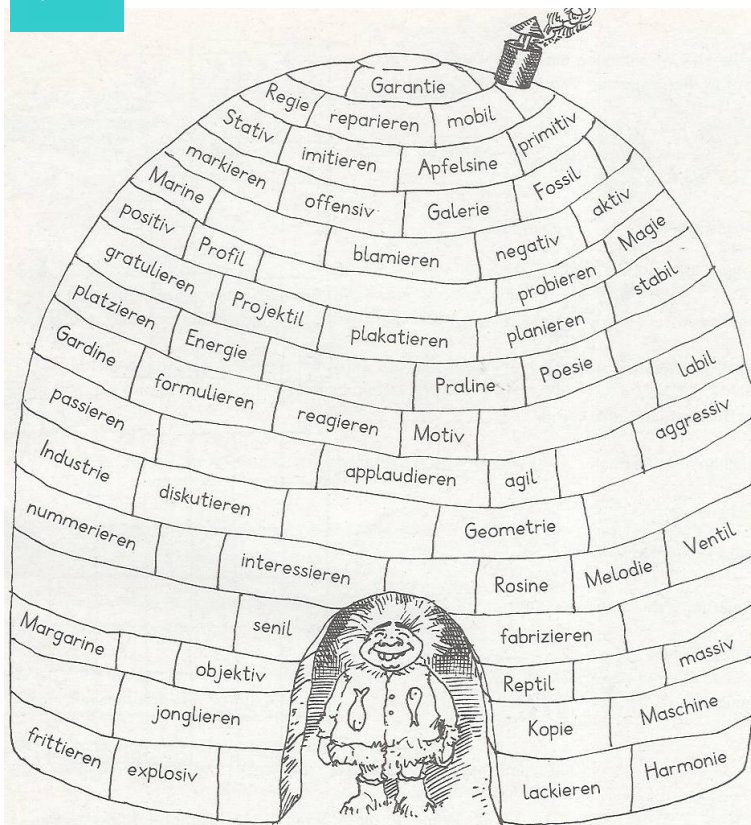 Garantie
Regie reparieren mobil
Stativ imitieren Apfelsine primitiv
markieren offensiv Galerie Fossil
Marine blamieren negativ aktiv
positiv Profil probieren Magie
gratulieren Projektil plakatieren planieren stabil
platzieren Energie Praline Poesie
Gardine formulieren reagieren Motiv labil
passieren applaudieren agil aggressiv
Industrie diskutieren Geometrie
nummerieren interessieren Rosine Melodie Ventil
senil fabrizieren
Margarine objektiv Reptil massiv
jonglieren Kopie Maschine
frittieren explosiv lackieren Harmonie